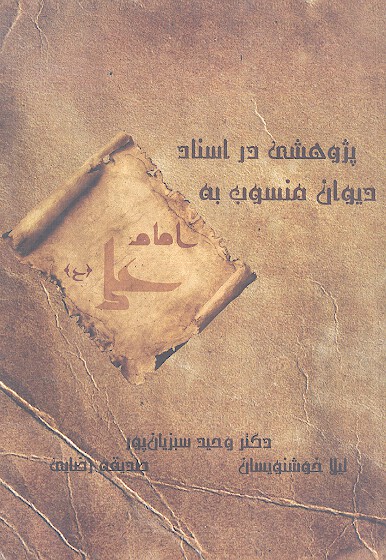 پژوهشی در اسناد
دیوان منسوب به
امام
علی (ع)
دکتر وحید سبزیان‌پور
لیلا خوشنویسان
صدیقه رضایی